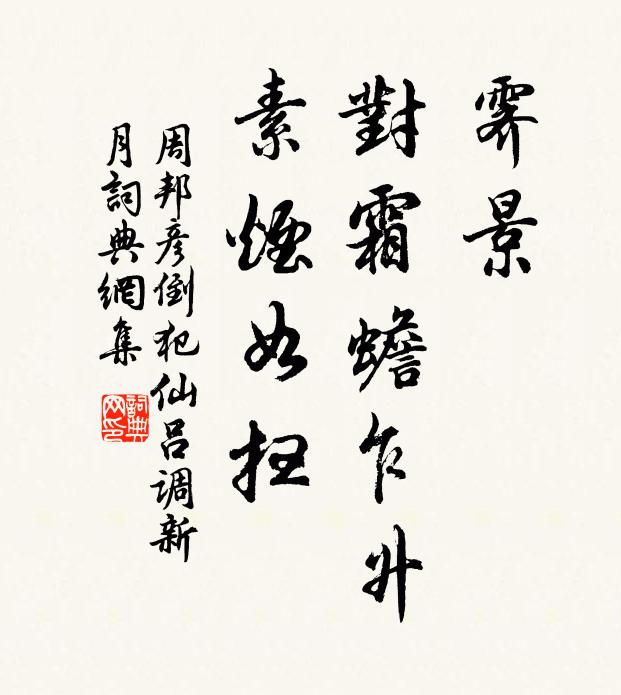 霽景
對霜蟾乍升
素煙如扫
周邦彦倒犯仙吕调新
月詞典網集
詞典
网印